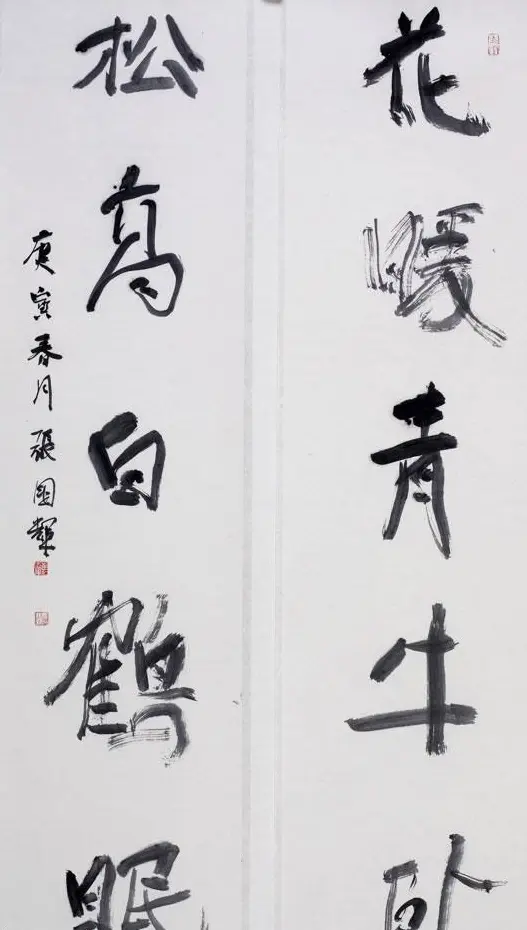 花暖青牛卧
松高白鹤眠
庚寅春月張国輦